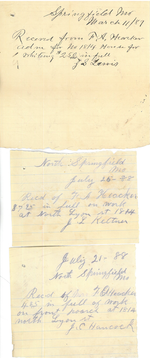 Springfield Mo
March 11/89
Recved from F. A. Heacker
order for No 1814 House for
Whiting $2 in full
J D Lewis
North Springfield
Mo
July 26 - 88
Recd of F. A. Heacker
$25 in full on work
at North Lyon at 1814
J. L. Kettner
July 21 - 88
North Springfield
Mo
Recd of F A Heacker
in full of work
on front porch at 1814
north Lyon st
J. C. Hancock